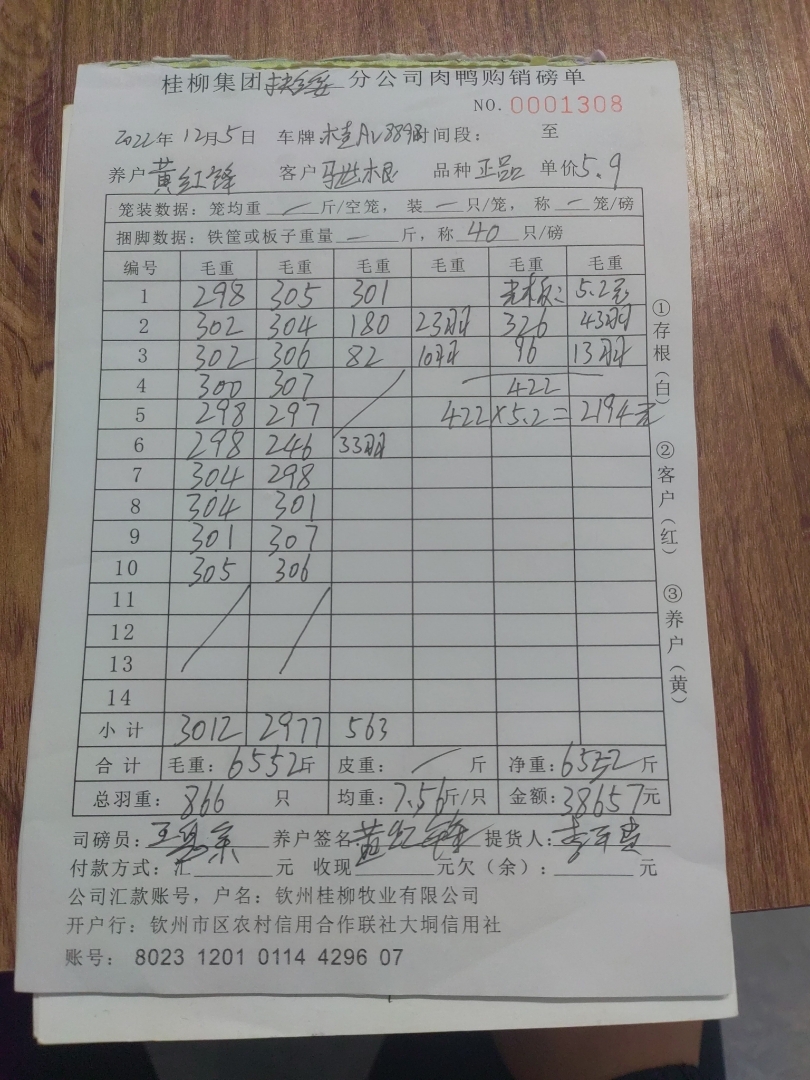 桂柳集团扶绥分公司肉鸭购销磅单
NO. 0001308
2022年12月5日 车牌 桂A 时间段： 至
养户 黄红锋 客户 马世根 品种 正品 单价 5.9
笼装数据：笼均重 / 斤/空笼，装 一 只/笼，称 一 笼/磅
捆脚数据：铁筐或板子重量 一 斤，称 40 只/磅
编号 毛重 毛重 毛重 毛重 毛重 毛重
1 298 305 301 5.2元
2 302 304 180 23羽 326 43羽
3 302 306 82 10羽 96 13羽
4 300 307 422
5 298 297 422×5.2=2194元
6 298 246 33羽
7 304 298
8 304 301
9 301 307
10 305 306
11
12
13
14
小计 3012 2977 563
合计 毛重：6552斤 皮重： / 斤 净重：6552斤
总羽重：866 只 均重：7.56斤/只 金额：38657元
司磅员： 养户签名：黄红锋 提货人：
付款方式：汇 元 收现 元欠（余）： 元
公司汇款账号，户名：钦州桂柳牧业有限公司
开户行：钦州市区农村信用合作联社大垌信用社
账号：8023 1201 0114 4296 07
①存根（白）
②客户（红）
③养户（黄）